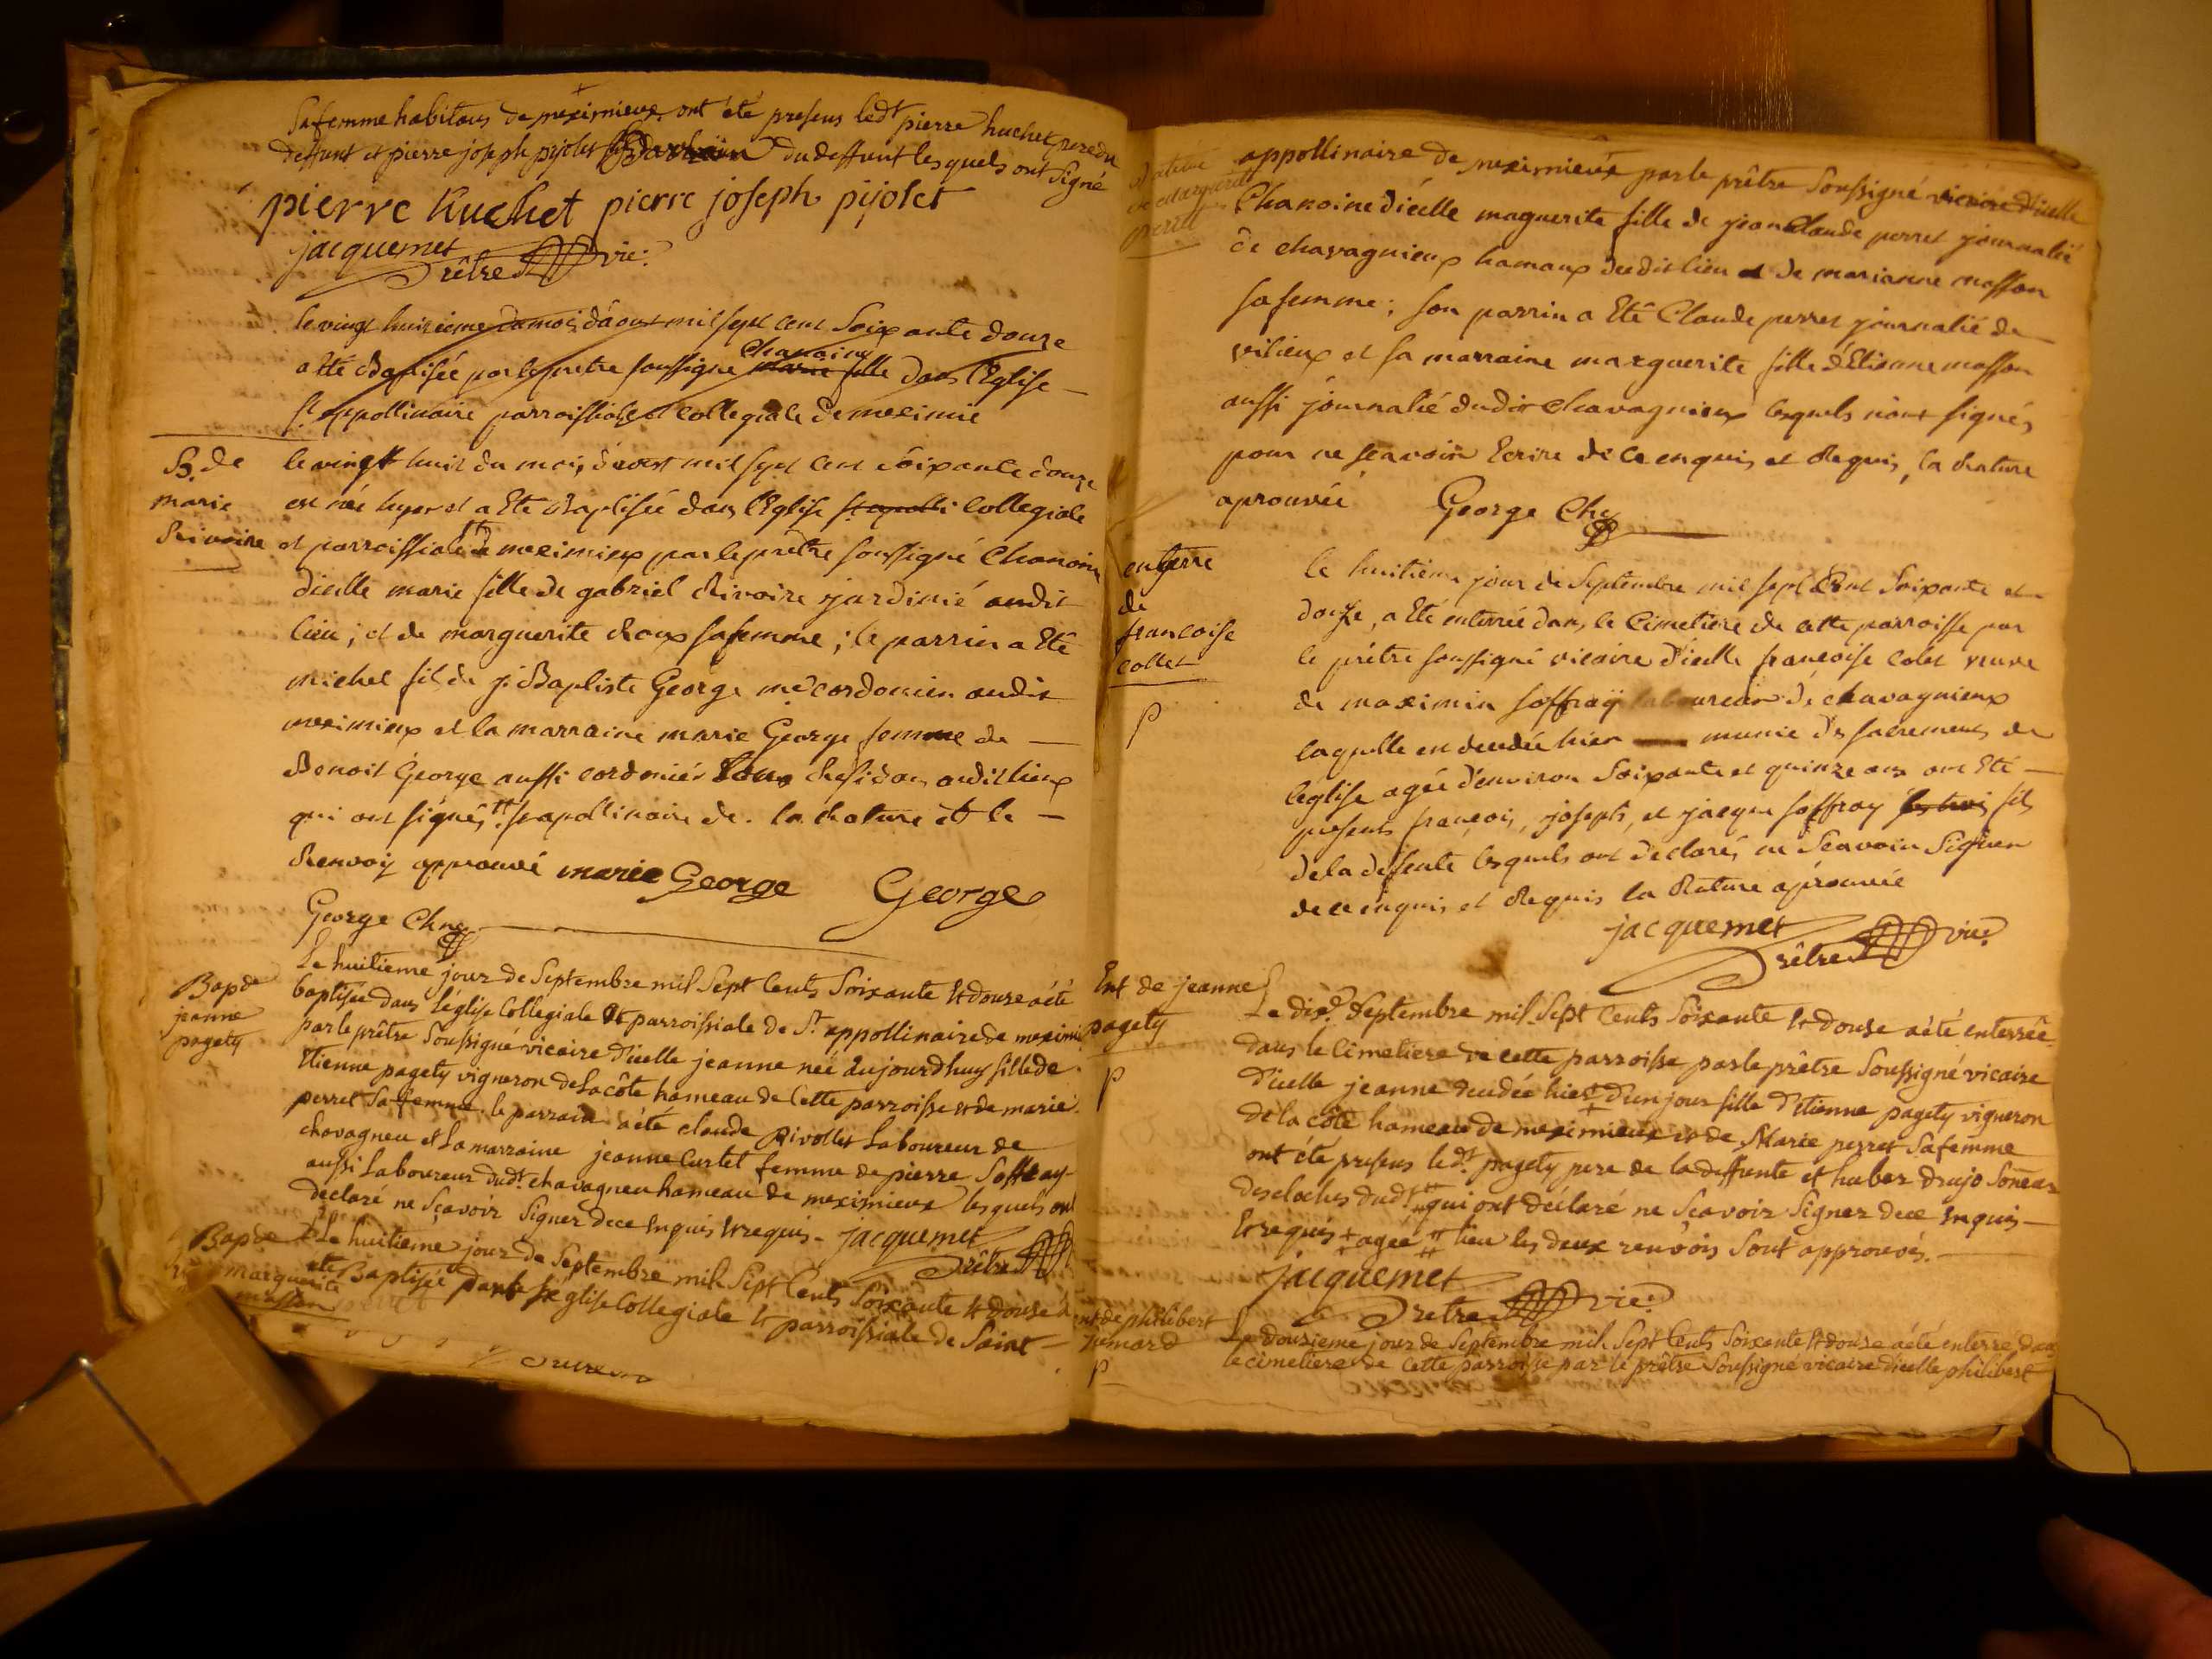 sa femme habitans de meximieux ont été presens led.t pierre huchet pere du
deffunt et pierre joseph pijolet du deffunt lesquels ont signé
pierre huchet pierre joseph pijolet
jacquemet
prêtre vic:
le vingt huitieme du mois d'aout mil sept cent soixante douze
a été Baptisée par le pretre soussigné chanoine marie fille dans l'Eglise
st appollinaire parroissiale et collegiale de meximie
B. de
marie
Rivoire
le vingt huit du mois d'aoust mil sept cent soixante douze
est née hyer et a Eté Baptisée dans l'Eglise st apolli collegiale
et parroissiale de meximieux par le prêtre soussigné Chanoine
d'icelle marie fille de gabriel Rivoire jardinié audit
lieu; et de marguerite Roux sa femme; le parrin a Eté
michel fils de j. Baptiste George me cordonien audit
meximieux et la marraine marie George femme de
Benoit George aussi cordonier tous Residans audit lieux
qui ont signés. st apollinaire de. la Rature et le
Renvoy approuvé marie George George
George Chne
Bap de
jeanne
pagety
Le huitieme jour de Septembre mil Sept Cents Soixante et douze a été
baptisée dans l'église Collégiale et parroissiale de St. appollinaire de meximie
par le prêtre Soussigné vicaire d'icelle jeanne née aujourdhuy fille de
Etienne pagety vigneron de la côte hameau de Cette parroisse et de marie
perret Sa femme. le parrain a été claude Rivollet Laboureur de
chavagneu et La marraine jeanne Curtet femme de pierre Soffray
aussi Laboureur dudt. chavagneu hameau de meximieux lesquels ont
declaré ne Sçavoir Signer de ce Enquis et requis - jacquemet
prêtre
Bap de
marguerite
masson perret
Le huitieme jour de Septembre mil Sept Cents Soixante et douze a
été Baptisée dans l'église Collegiale et parroissiale de Saint
Batême
de marguerite
perret
appollinaire de meximieux par le prêtre Soussigné vicaire d'icelle
Chanoine d'icelle maguerite fille de jean Claude perret journalié
de chavagnieux hamaux dudit lieu et de marianne masson
sa femme; son parrin a Eté Claude perret journalié de
vilieux et sa marraine marguerite fille d'Etienne masson
aussi journalié dudit chavagnieux lesquels n'ont signés
pour ne sçavoir Ecrire de ce enquis et Requis, la Rature
aprouvée George Chne
enterre
de
francoise
collet
p
le huitième jour de Septembre mil sept Cent Soixante et
douze, a Eté enterrée dans le Cimetiere de cette parroisse par
le prêtre soussigné vicaire d'icelle françoise colet veuve
de maximin soffray laboureur de chavagnieux
laquelle en decedée hier munie des sacremens de
l'eglise agée d'environ Soixante et quinze ans ont Eté
presents françois, joseph, et jacque soffray les trois fils
de la defunte lesquels ont declarés ne Sçavoir Signer
de ce enquis et Requis la Rature aprouvée
jacquemet
prêtre vic:
Ent de jeanne
pagety
p
Le dix. Septembre mil Sept Cents Soixante et douze a été enterrée
dans le Cimetiere de cette parroisse par le prêtre Soussigné vicaire
d'icelle jeanne decedée hier d'un jour fille d'Etienne pagety vigneron
de la côte hameau de meximieux et de Marie perret Sa femme
ont été presens led.t pagety pere de la deffunte et huber drujo Soneur
des cloches dudt qui ont déclaré ne Sçavoir Signer de ce Enquis
et requis agée lieu les deux renvois Sont approuvés.
jacquemet
prêtre vic:
nt de philibert
jumard
p
Le douzieme jour de Septembre mil Sept Cents Soixante et douze a été enterré dans
le cimetiere de Cette parroisse par le prêtre Soussigné vicaire d'icelle philibert